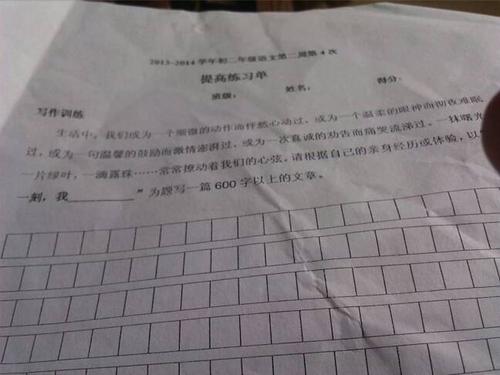 2013-2014学年初二年级语文第二周第4次
提高练习单
班级： 姓名： 得分：
写作训练
生活中，我们或为一个细微的动作而怦然心动过，或为一个温柔的眼神而彻夜难眠
过，或为一句温馨的鼓励而激情澎湃过，或为一次真诚的劝告而痛哭流涕过。一抹曙光
一片绿叶，一滴露珠……常常撩动着我们的心弦。请根据自己的亲身经历或体验，以
一刻，我________”为题写一篇600字以上的文章。